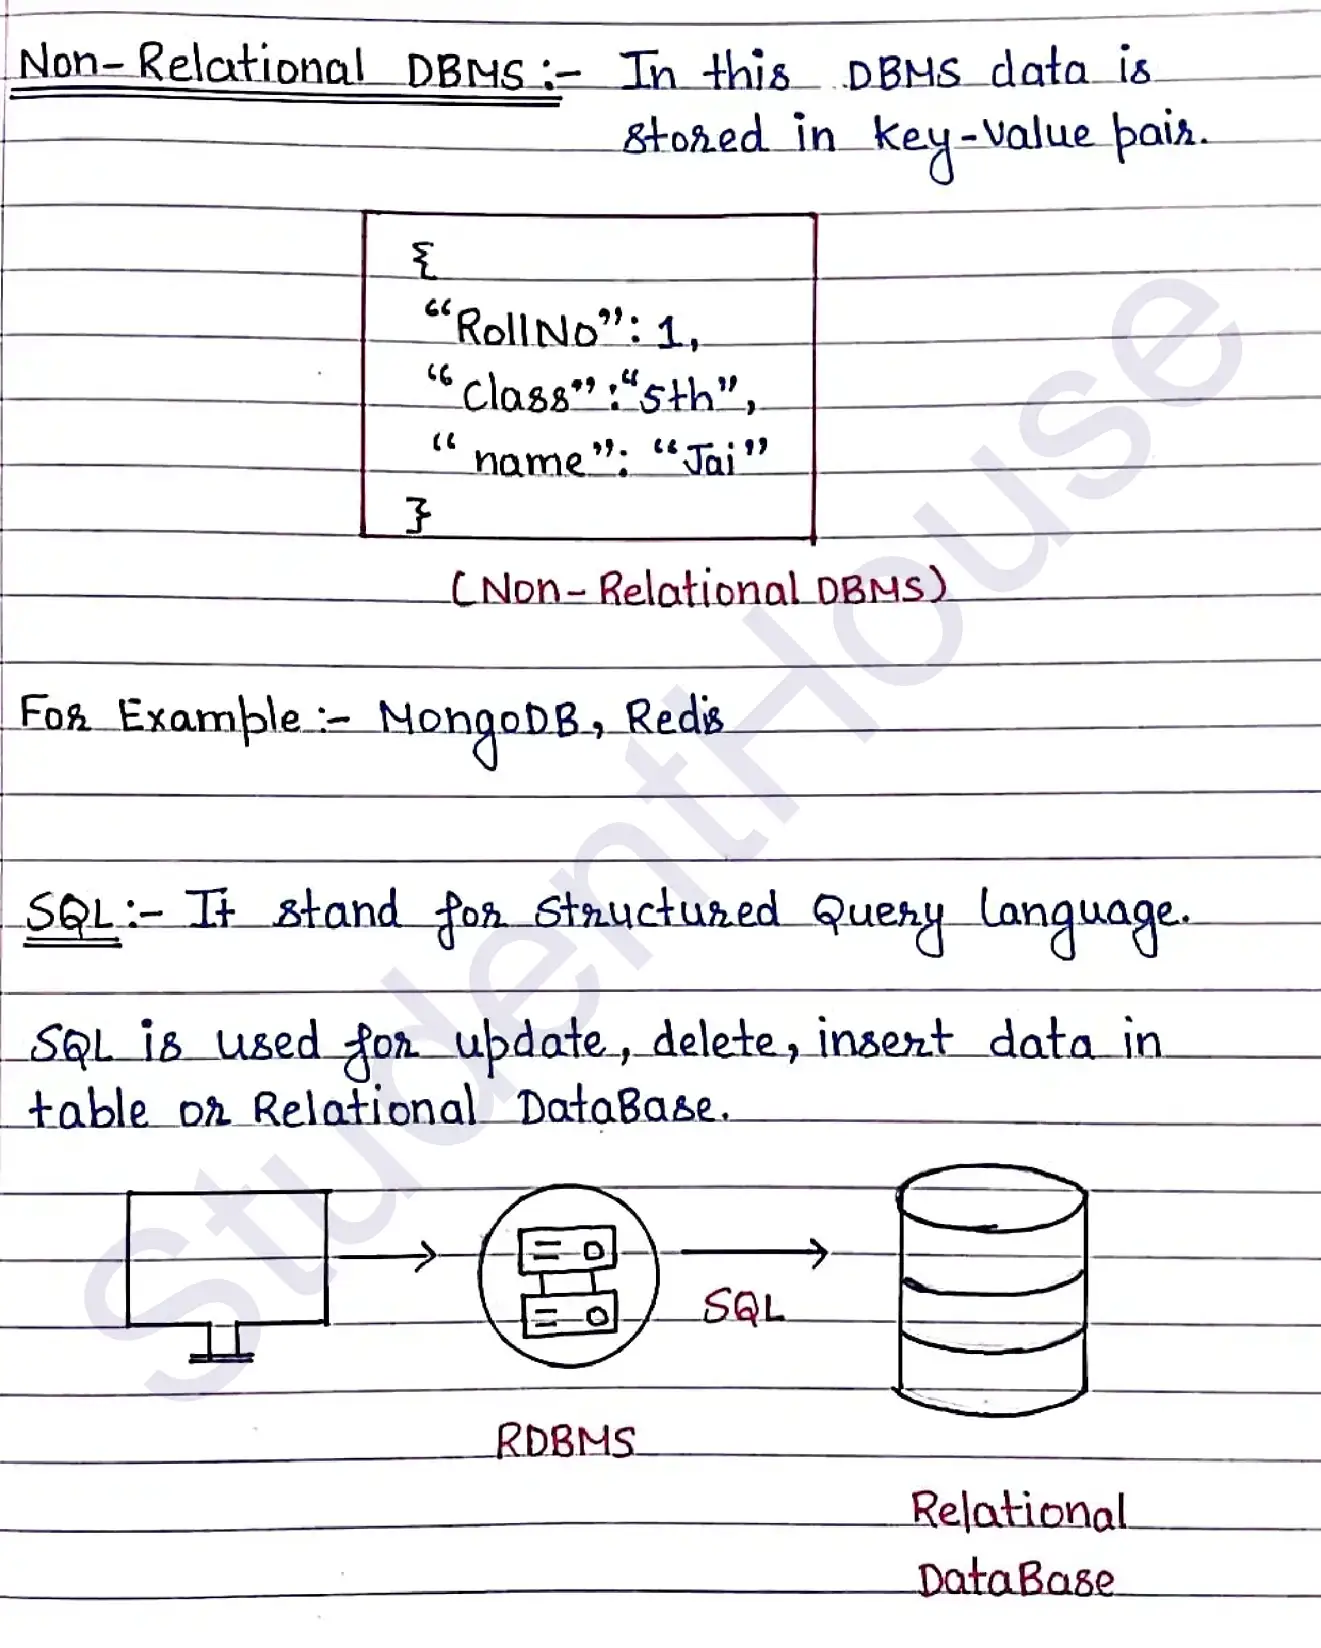 Non-Relational DBMS :- In this DBMS data is
stored in key-value pair.
{
"RollNo": 1,
"class": "5th",
"name": "Jai"
}
(Non-Relational DBMS)
For Example:- MongoDB, Redis
SQL:- It stand for Structured Query Language.
SQL is used for update, delete, insert data in
table or Relational DataBase.
SQL
RDBMS
Relational
DataBase
StudentHouse